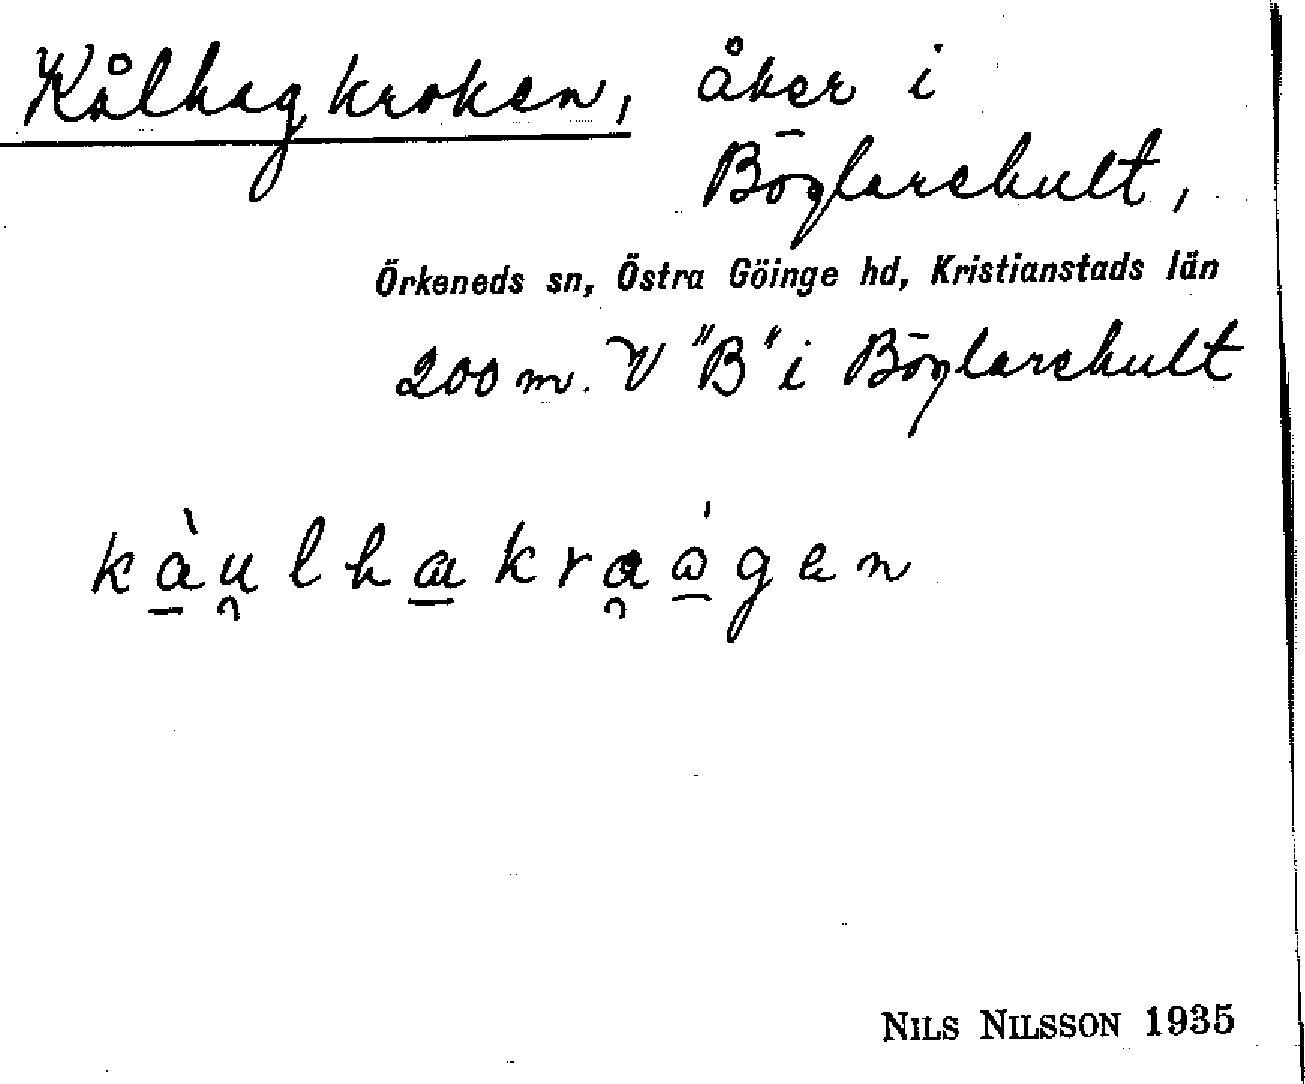 Kålhagkroken, åker i
Böglarehult,
Örkeneds sn, Östra Göinge hd, Kristianstads län
200 m. V "B" i Böglarehult
kàulhakraågen
NILS NILSSON 1935